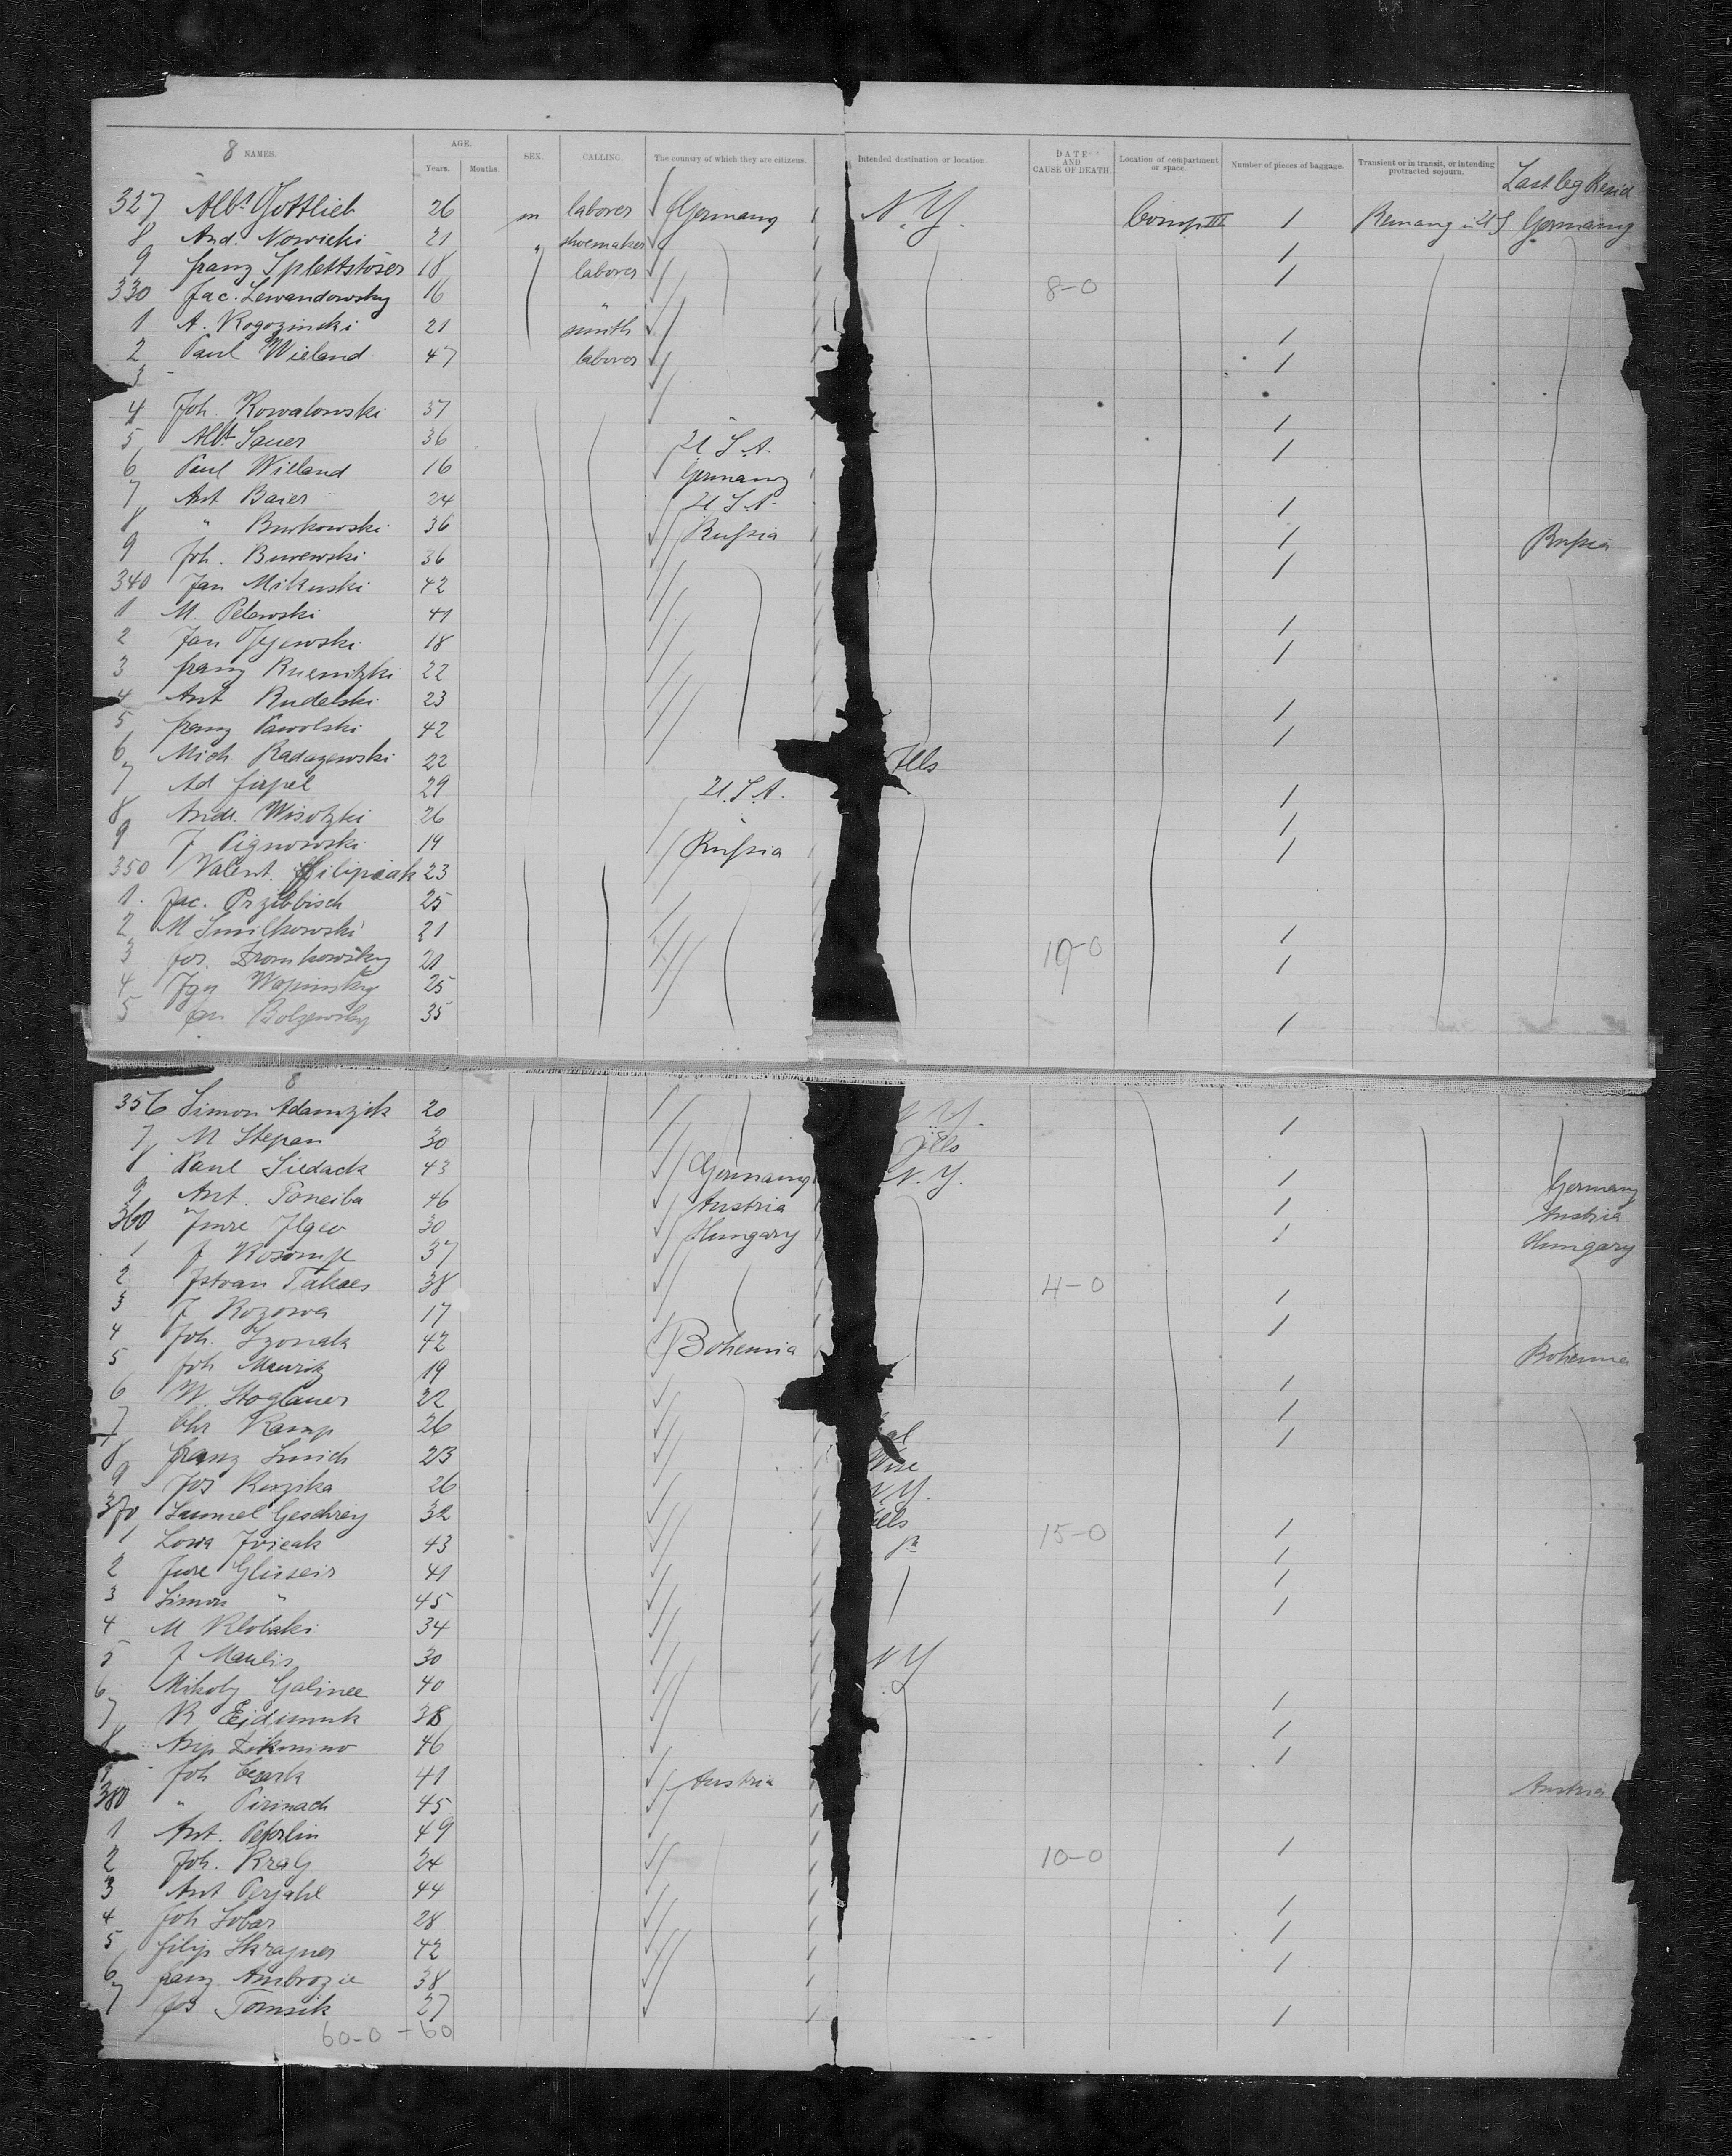 8 NAMES. AGE. SEX. CALLING. The country of which they are citizens. Intended destination or location. DATE AND CAUSE OF DEATH. Location of compartment or space. Number of pieces of baggage. Transient or in transit, or intending protracted sojourn. Last leg Resid
Years. Months.
327 Albt Gottlieb 26 m laborer Germany N.Y. Comp III 1 Remang in U S Germany
8 And. Nowicki 21 " shoemaker 1
9 franz Splettstöser 18 laborer 1
330 Jac. Lewandowsky 16 " 8-0
1 A. Rogozinski 21 smith 1
2 Paul Wieland 47 laborer 1
3
4 Joh. Kowalowski 37 1
5 Albt Sauer 36 U.S.A. 1
6 Paul Wieland 16 Germany
7 Ant Baier 24 U.S.A. 1
8 " Burkowski 36 Russia 1 Russia
9 Joh. Burewski 36 1
340 Jan Mikuski 42
1 M. Pelewski 41 1
2 Jan 18 1
3 franz 22
4 Ant Rudelski 23 1
5 franz Pawolski 42 1
6 Mich Radazewski 22 Ills
7 Ad 29 U.S.A. 1
8 Andr. Wisotzki 26 1
9 J Pignowski 19 Russia 1
350 Valent. Filipiak 23
1 Jac. Przibbisch 25
2 M Smilkowski 21 1
3 Jos. Dromkowsky 20 10-0 1
4 Wapinsky 25
5 Jan Bolzewsky 35 1
8
356 Simon Adamzik 20 N.Y. 1
7 M Stepan 30 Ills
8 Paul Siedack 43 Germany N.Y. 1 Germany
9 Ant. Poneiba 46 Austria 1 Austria
360 Imre Ilgeo 30 Hungary 1 Hungary
1 J 37
2 Istvan Takacs 38 4-0 1
3 J Rozowa 17 1
4 Joh. Szonak 42 Bohemia Bohemia
5 Joh Mauritz 19 1
6 W. Stoglauer 22 1
7 Chr Kamp 26 1
8 franz Smich 23
9 Jos Ruzika 26 N.Y.
370 Samuel Geschrey 32 Ills 1
1 43 15-0 1
2 Jure 41 1
3 Simon " 45 1
4 M Klobaki 34
5 J Maulis 30 N Y
6 Mikoly Galinee 40 1
7 K 38 1
8 46 1
9 Joh 41 Austria Austria
380 " Pirnach 45
1 Ant. Peterlin 49 1
2 Joh. Kralj 24 10-0
3 Ant Perjahl 44 1
4 Joh Sobar 28 1
5 filip Skrajner 42 1
6 franz Ambrozic 38
7 Jos Tomsik 27 1
60-0 + 60